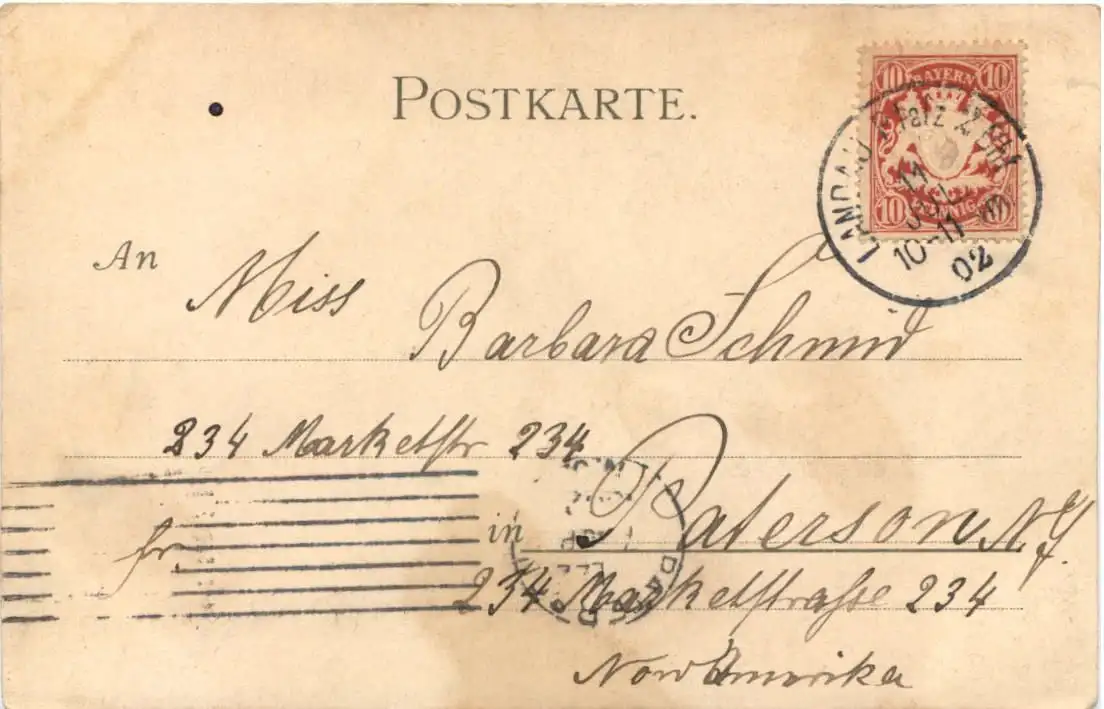 POSTKARTE.
10 BAYERN 10
10 PFENNIG 10
LANDAU Pfalz
11 JUL
10-11
02
An Miss Barbara Schmid
234 Marketstr 234
fr.
in Paterson N.J.
234 Marketstraße 234
Nord Amerika